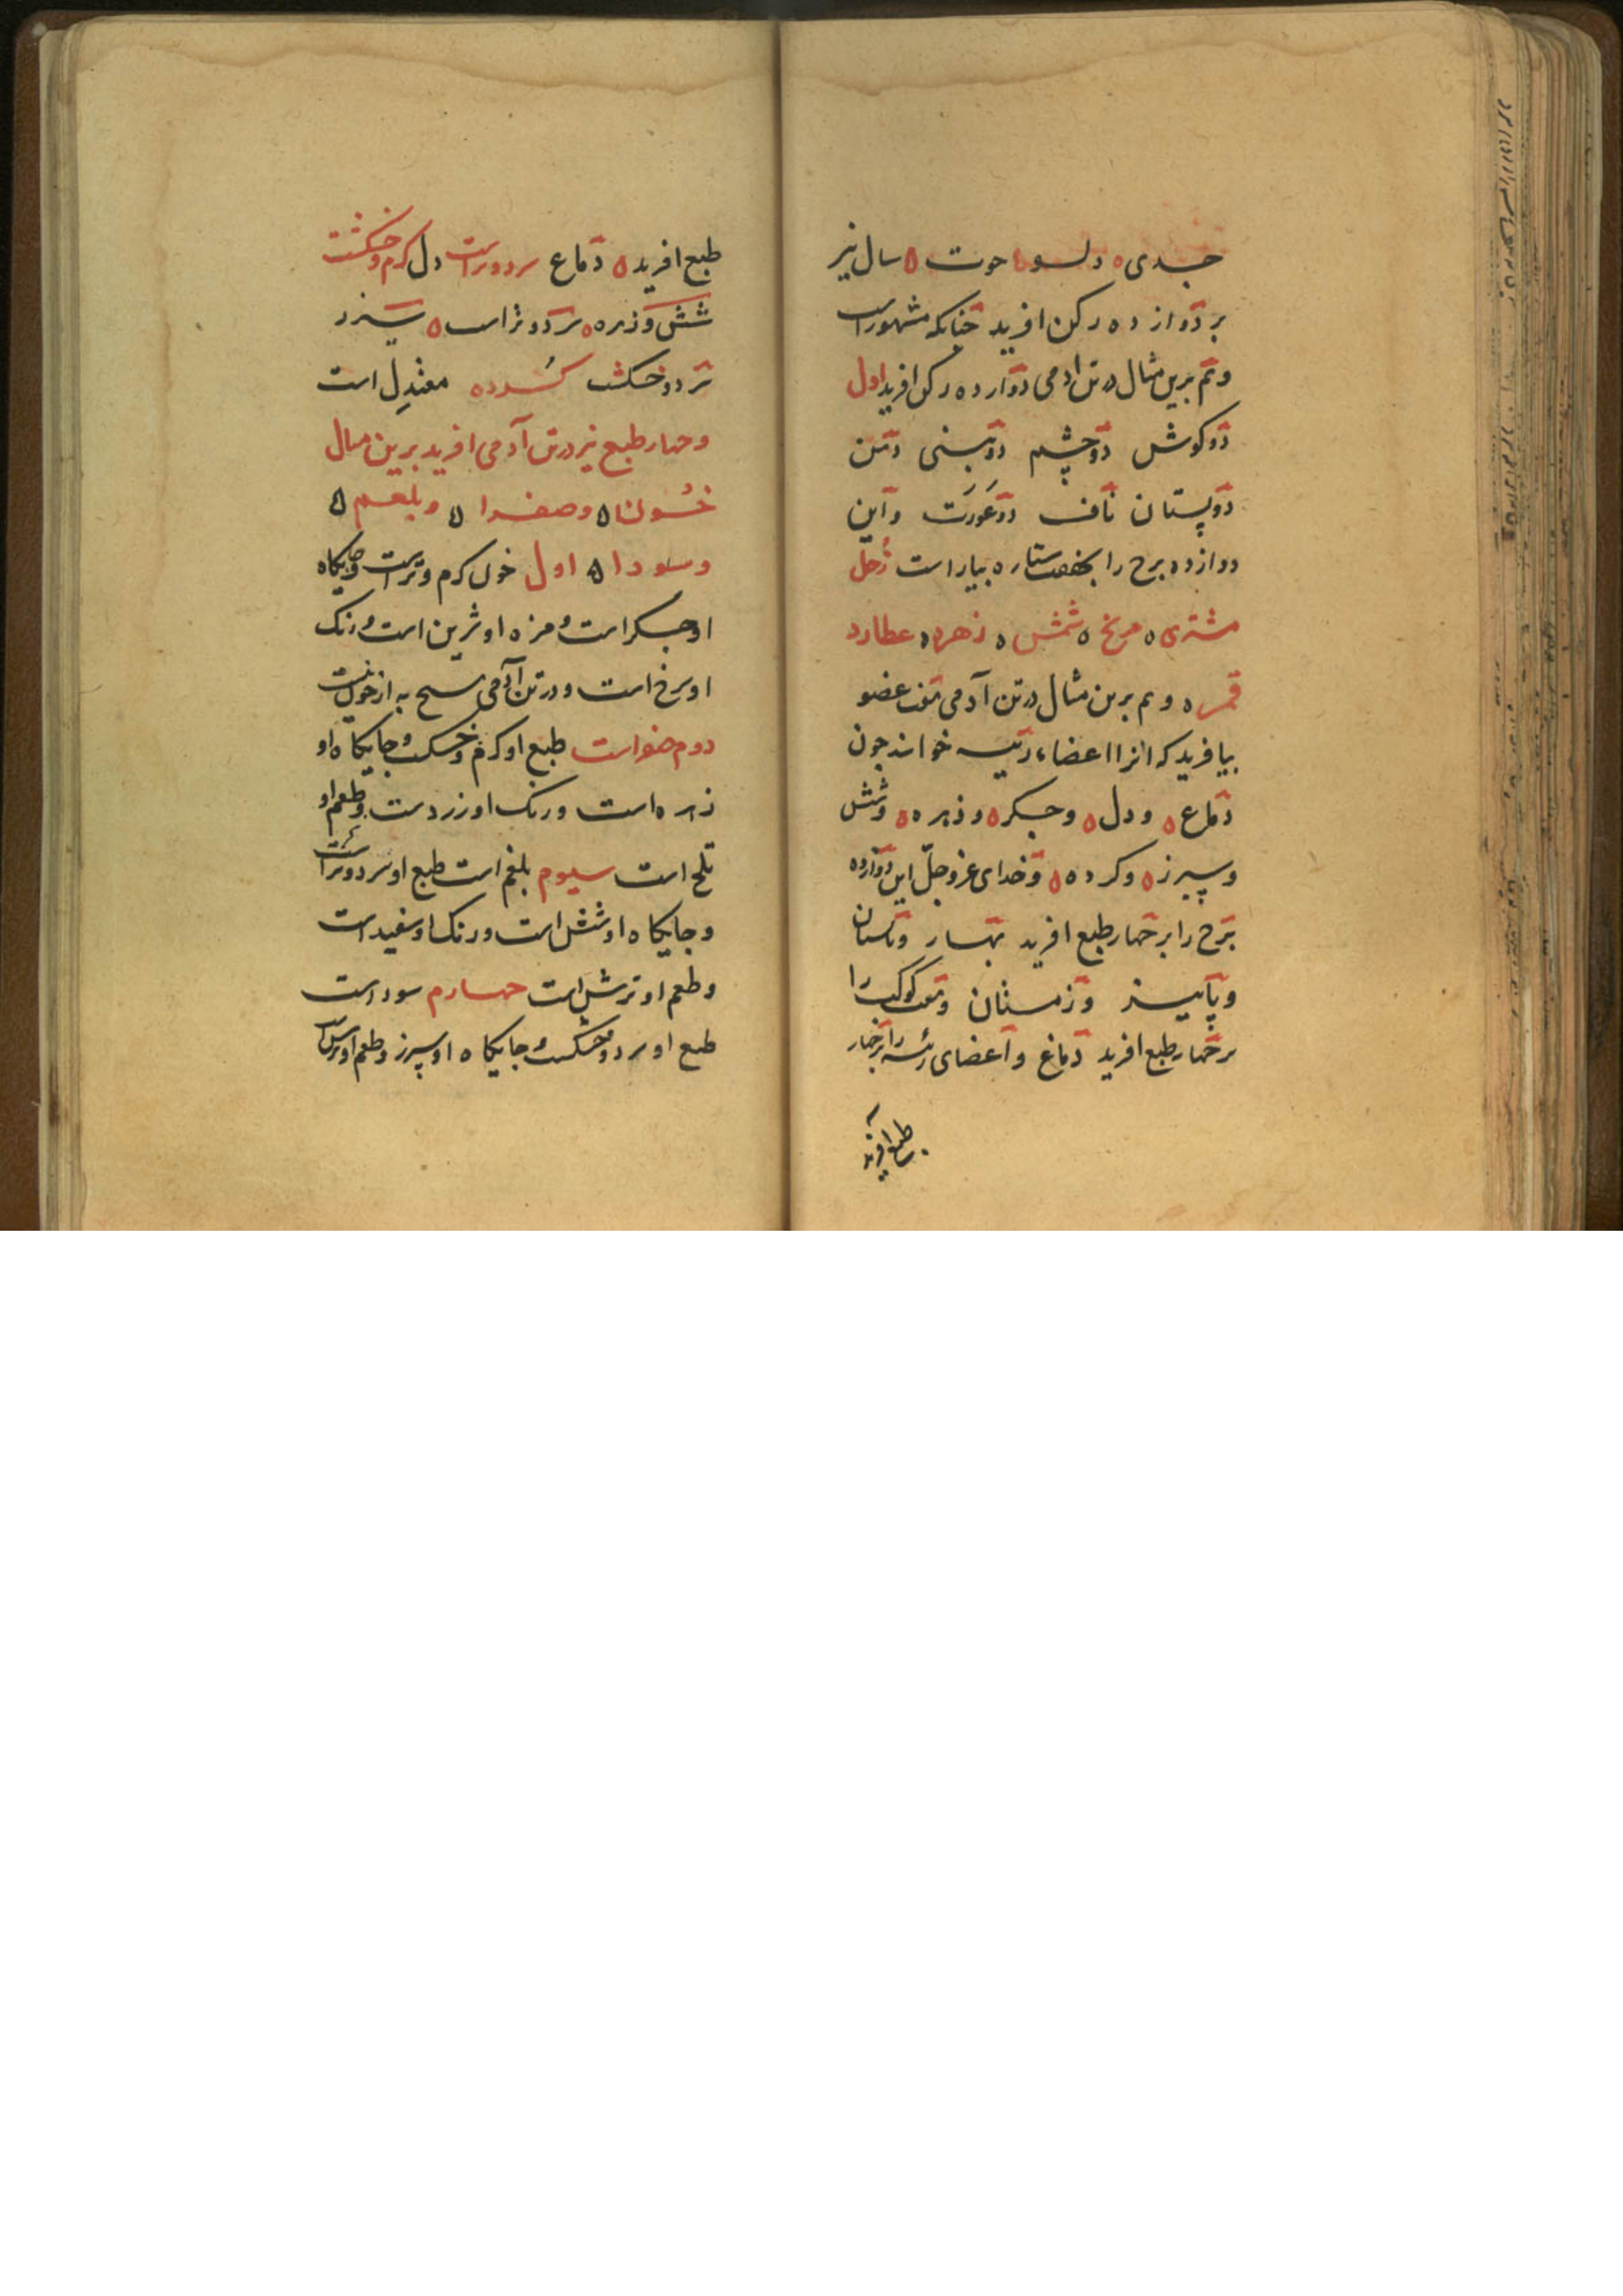 جدی ه دلو ه حوت ه سال نیز
بر دوازده رکن افرید چنانکه مشهوراست
و هم برین مثال در تن ادمی دوازده رکن افرید اول
دو کوش دو چشم دو بینی دهن
دو پستان ناف دو عورت و این
دوازده برج را بهفت ستاره بیاراست زحل
مشتری ه مریخ ه شمس ه زهره ه عطارد
قمر ه و هم برین مثال در تن آدمی هفت عضو
بیافرید که انرا اعضاء رئیسه خوانند چون
دماغ ه و دل ه و جکر ه و زهره ه و شش
و سپرز ه و کرده ه و خدای عز و جل این دوازده
برج را بر چهار طبع افرید بهار و تابستان
و پاییز و زمستان و هفت کوکب را
بر چهار طبع افرید دماغ و اعضای رئیسه را بر چهار
طبع افرید
طبع افرید ه دماغ سرد و تراست دل کرم و خشکست
شش و زهره ه سرد و تراست ه سپرز
سرد و خشکست کرده معتدل است
و چهار طبع نیز در تن آدمی افرید برین مثال
خون ه و صفرا ه و بلغم ه
و سودا ه اول خون کرم و تراست و جایکاه
او جکر است و مزه او شرین است و رنک
او سرخ است و در تن آدمی هیچ به از خون نیست
دوم صفراست طبع او کرم و خشکست و جایکاه او
زهره است و رنک او زردست و طعم او
تلخ است سیوم بلغم است طبع او سرد و تراست
و جایکاه او شش است و رنک او سفید است
و طعم او ترش است چهارم سوداست
طبع او سرد و خشکست و جایکاه او سپرز و طعم او ترش است